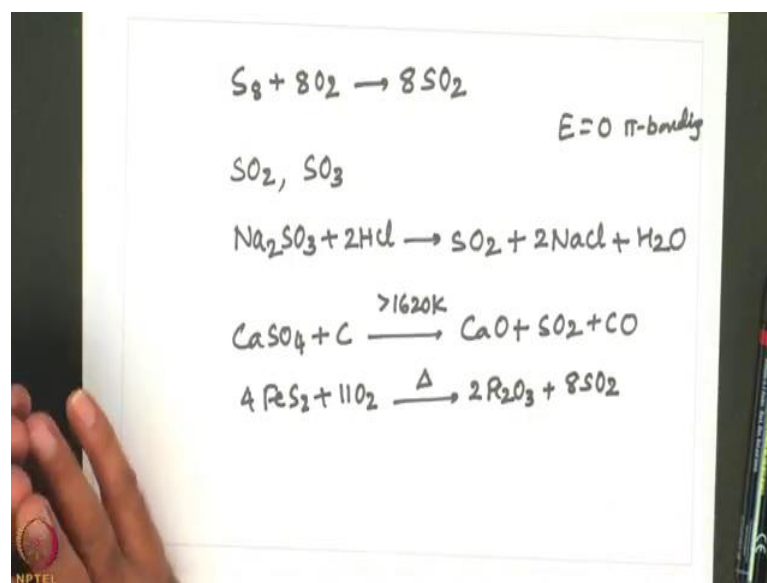 S₈ + 8O₂ → 8SO₂
E=O π-bonding
SO₂, SO₃
Na₂SO₃ + 2HCl → SO₂ + 2NaCl + H₂O
>1620K
CaSO₄ + C → CaO + SO₂ + CO
Δ
4 FeS₂ + 11O₂ → 2 R₂O₃ + 8SO₂
NPTEL